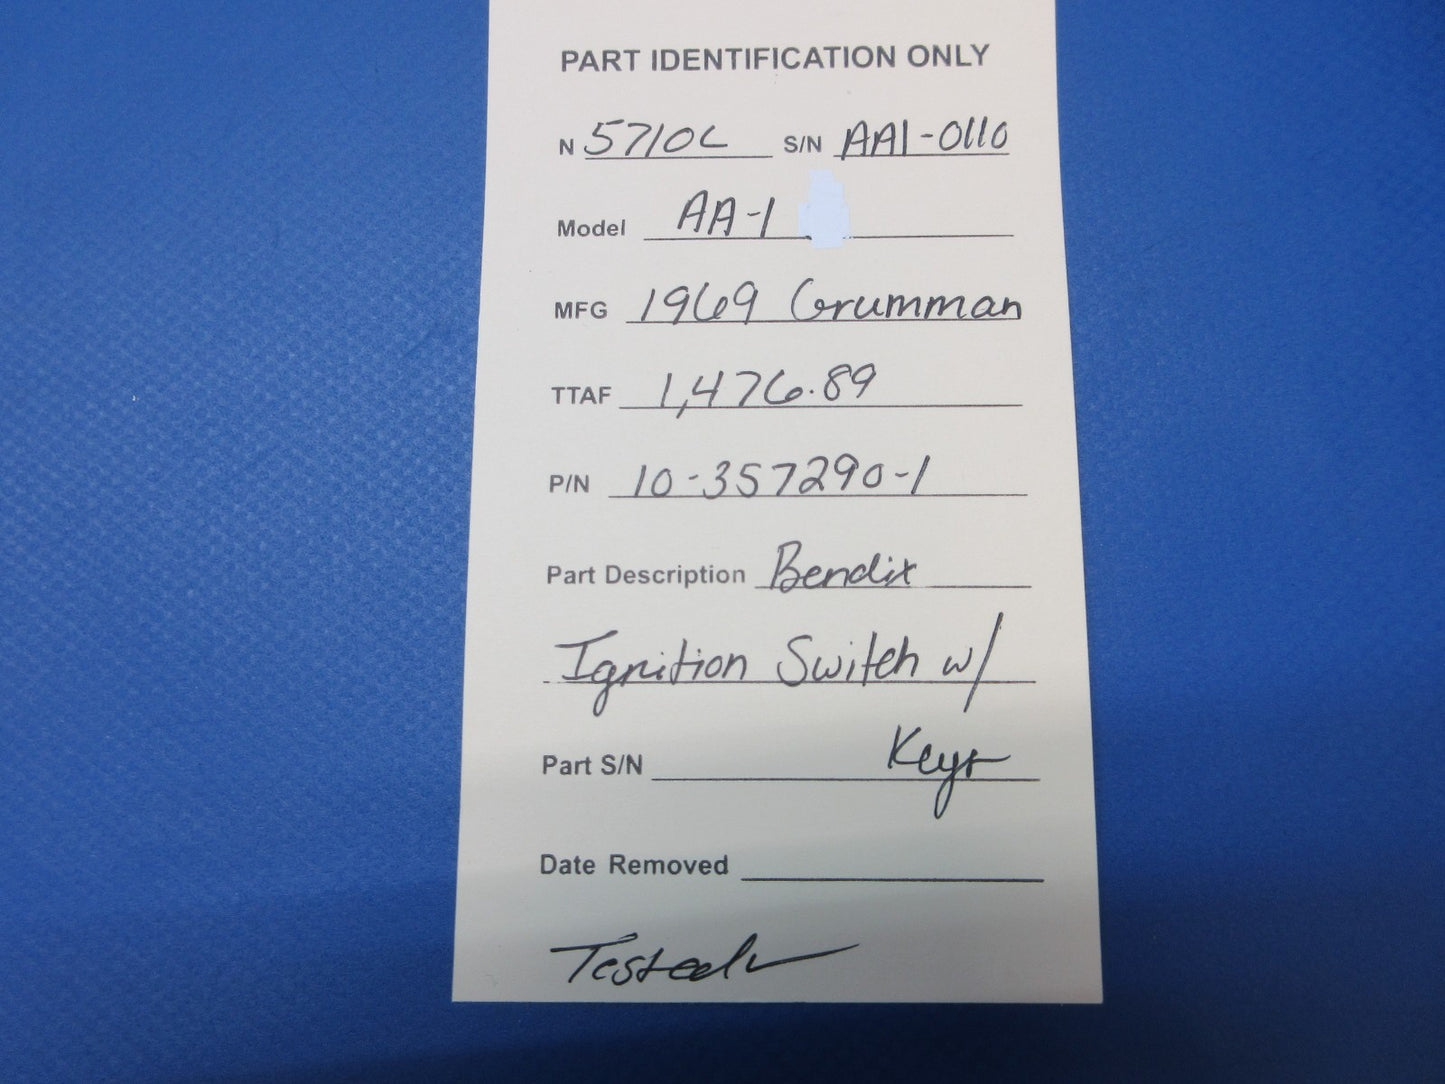 PART IDENTIFICATION ONLY
N 5710L S/N AA1-0110
Model AA-1
MFG 1969 Grumman
TTAF 1,476.89
P/N 10-357290-1
Part Description Bendix
Ignition Switch w/
Keys
Part S/N
Date Removed
Tested